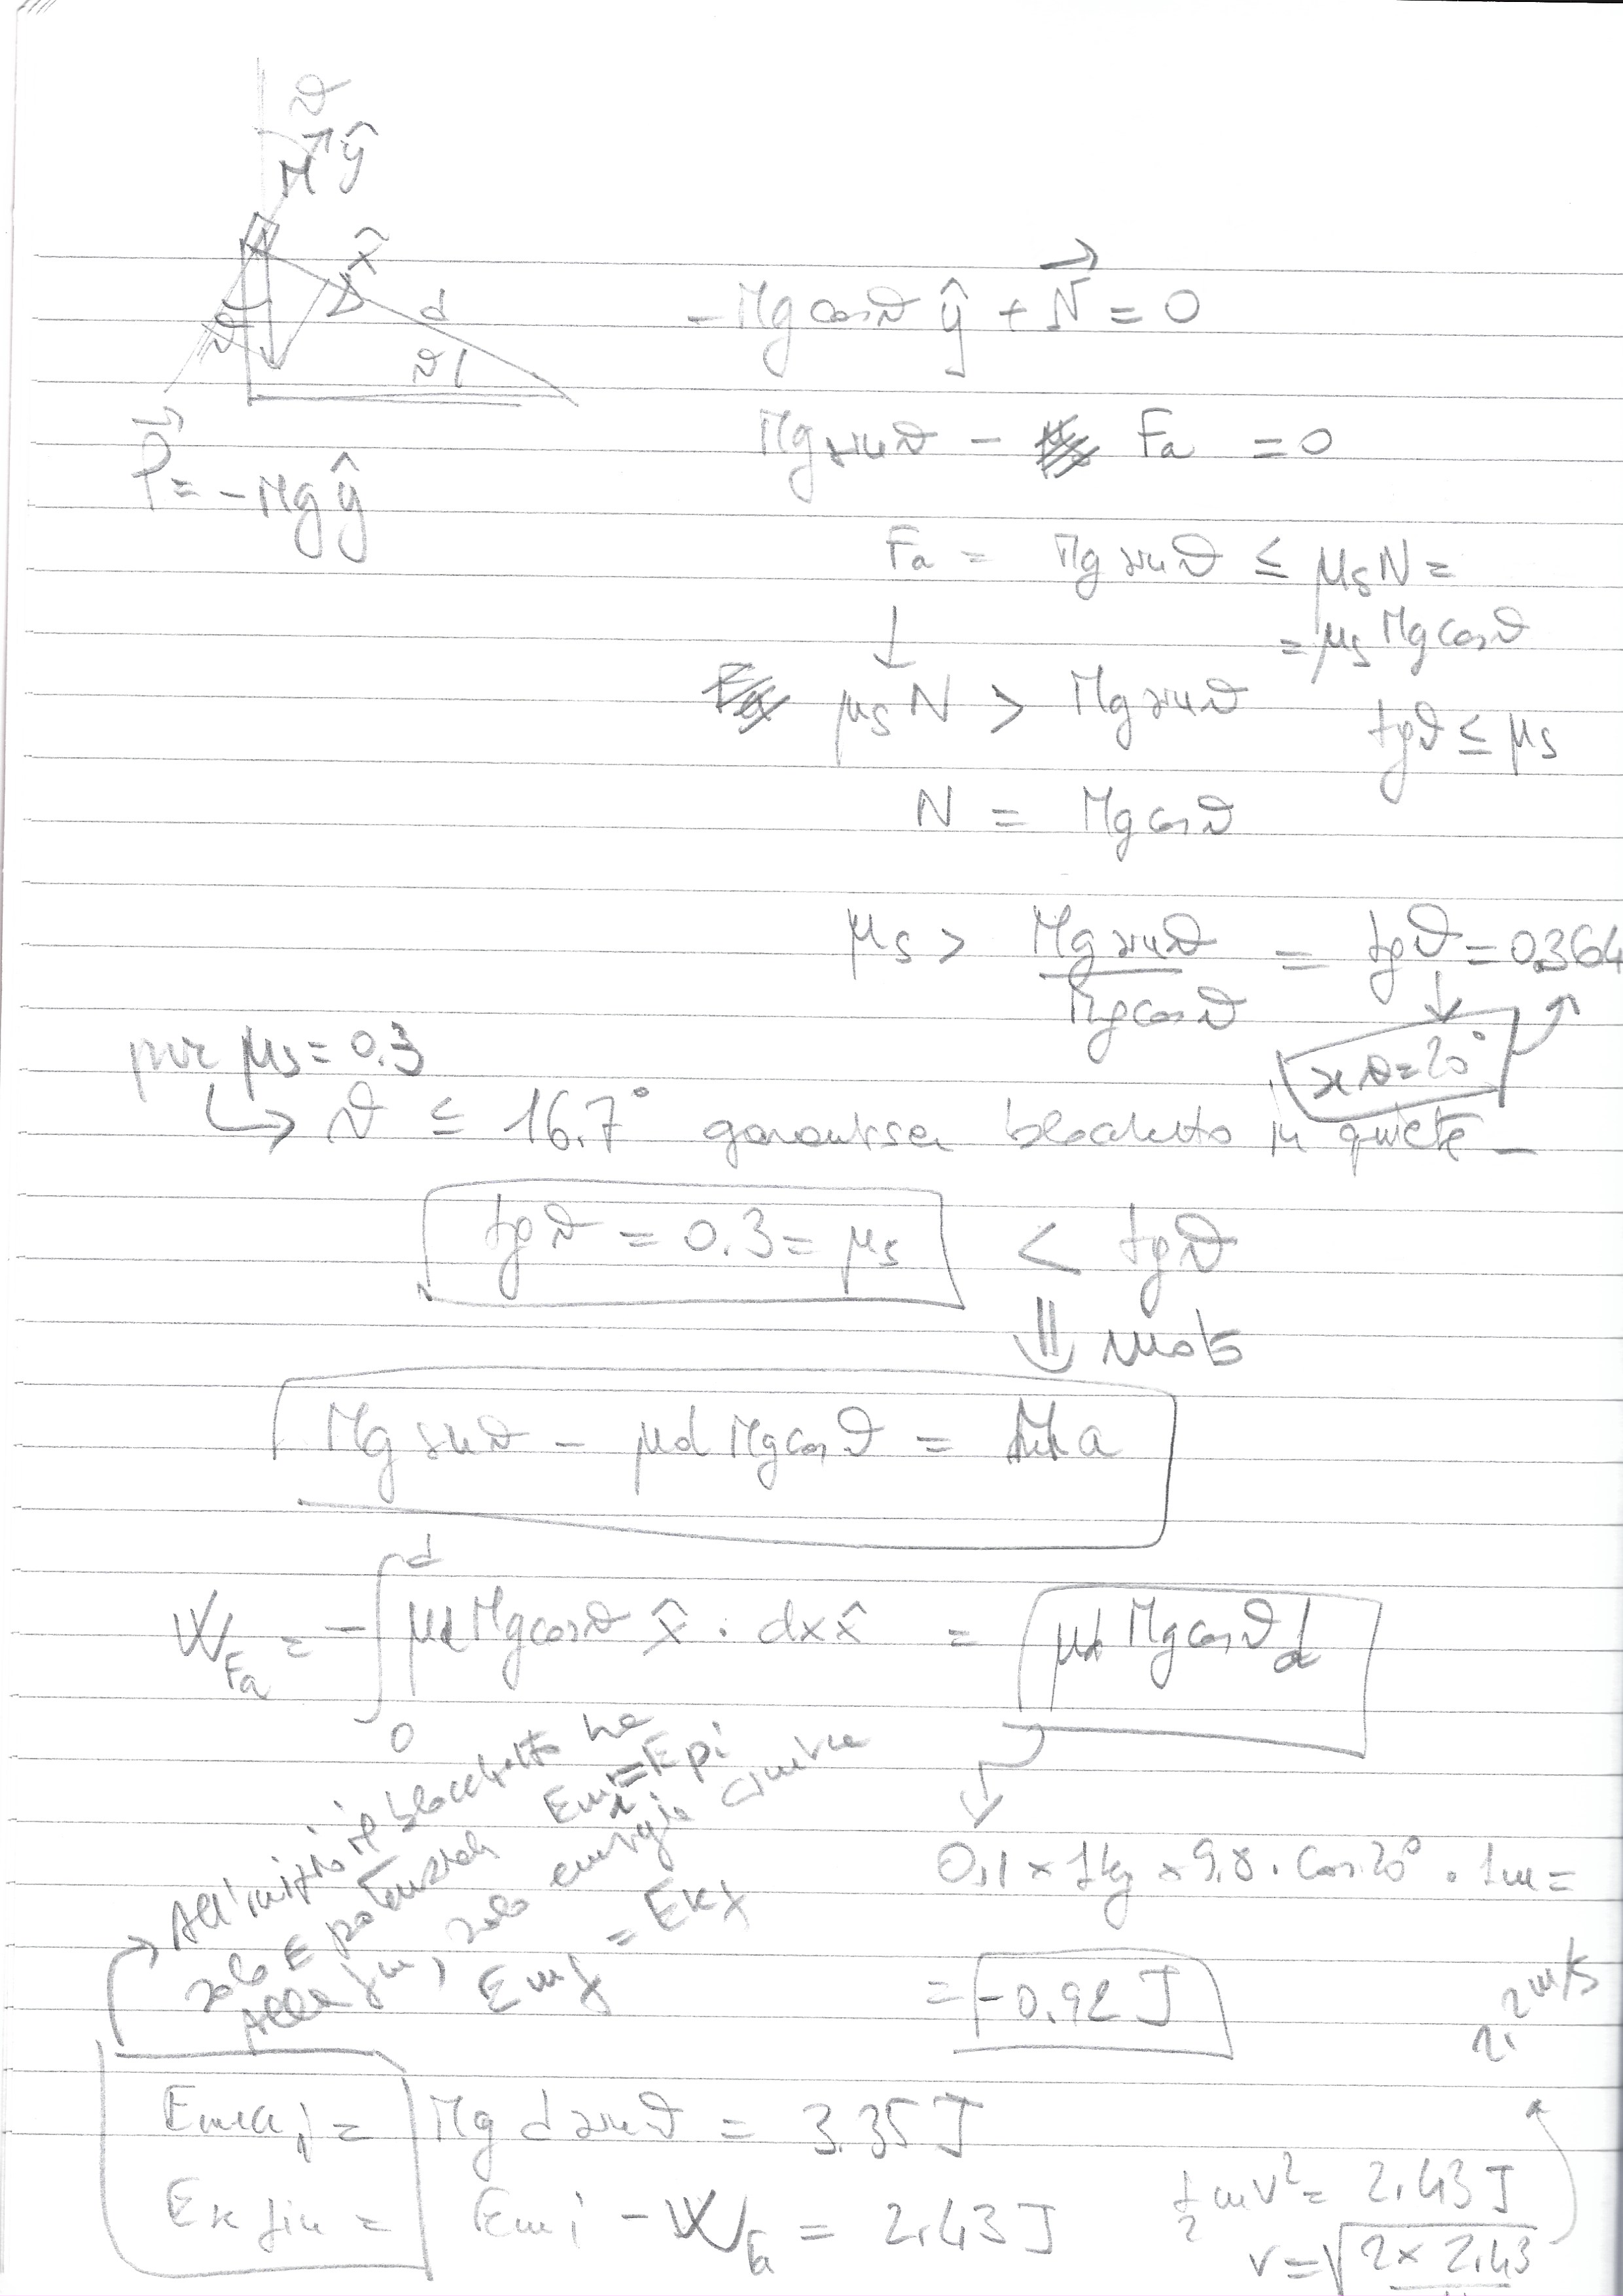 ϑ
M ŷ
x̂
d
ϑ
ϑ
P⃗ = -Mg ŷ
-Mg cosϑ ŷ + N⃗ = 0
Mg senϑ - Fa = 0
Fa = Mg senϑ ≤ μs N =
= μs Mg cosϑ
μs N > Mg senϑ
tgϑ ≤ μs
N = Mg cosϑ
μs > Mg senϑ / Mg cosϑ = tgϑ = 0.364
se ϑ = 20°
per μs = 0.3
ϑ ≤ 16.7° garantisce blocchetto in quiete
tgϑ = 0.3 = μs < tgϑ
⇓ moto
Mg senϑ - μd Mg cosϑ = Ma
W_Fa = - ∫₀ᵈ μd Mg cosϑ x̂ · dx x̂ = μd Mg cosϑ d
0,1 x 1kg x 9.8 · cos 20° · 1m =
= -0.92 J
All'inizio il blocchetto ha
solo E potenziale Emi = Epi
Alla fin, solo energia cinetica
Emf = Ekf
Emecc,i = Mg d senϑ = 3.35 J
Ek fin = Emi - W_Fa = 2.43 J
½ mv² = 2.43 J
v = √2 x 2.43
2.2 m/s